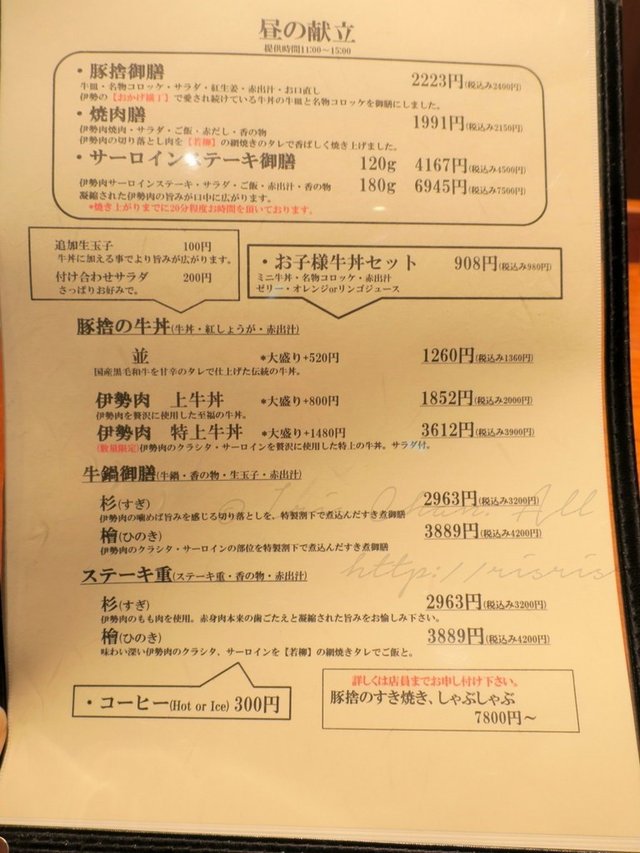 昼の献立
提供時間11:00～15:00
・豚捨御膳 2223円(税込み2400円)
牛皿・名物コロッケ・サラダ・紅生姜・赤出汁・お口直し
伊勢の【おかげ横丁】で愛され続けている牛丼の牛皿と名物コロッケを御膳にしました。
・焼肉膳 1991円(税込み2150円)
伊勢肉焼肉・サラダ・ご飯・赤だし・香の物
伊勢肉の切り落とし肉を【若柳】の網焼きのタレで香ばしく焼き上げました。
・サーロインステーキ御膳 120g 4167円(税込み4500円)
伊勢肉サーロインステーキ・サラダ・ご飯・赤出汁・香の物 180g 6945円(税込み7500円)
凝縮された伊勢肉の旨みが口中に広がります。
*焼き上がりまでに20分程度お時間を頂いております。
追加生玉子 100円
牛丼に加える事でより旨みが広がります。
付け合わせサラダ 200円
さっぱりお好みで。
・お子様牛丼セット 908円(税込み980円)
ミニ牛丼・名物コロッケ・赤出汁
ゼリー・オレンジorリンゴジュース
豚捨の牛丼(牛丼・紅しょうが・赤出汁)
並 *大盛り+520円 1260円(税込み1360円)
国産黒毛和牛を甘辛のタレで仕上げた伝統の牛丼。
伊勢肉 上牛丼 *大盛り+800円 1852円(税込み2000円)
伊勢肉を贅沢に使用した至福の牛丼。
伊勢肉 特上牛丼 *大盛り+1480円 3612円(税込み3900円)
(数量限定)伊勢肉のクラシタ・サーロインを贅沢に使用した特上の牛丼。サラダ付。
牛鍋御膳(牛鍋・香の物・生玉子・赤出汁)
杉(すぎ) 2963円(税込み3200円)
伊勢肉の噛めば旨みを感じる切り落としを、特製割下で煮込んだすき煮御膳
檜(ひのき) 3889円(税込み4200円)
伊勢肉のクラシタ・サーロインの部位を特製割下で煮込んだすき煮御膳
ステーキ重(ステーキ重・香の物・赤出汁)
http://risris
杉(すぎ) 2963円(税込み3200円)
伊勢肉のもも肉を使用。赤身肉本来の歯ごたえと凝縮された旨みをお愉しみ下さい。
檜(ひのき) 3889円(税込み4200円)
味わい深い伊勢肉のクラシタ、サーロインを【若柳】の網焼きタレでご飯と。
・コーヒー(Hot or Ice) 300円
詳しくは店員までお申し付け下さい。
豚捨のすき焼き、しゃぶしゃぶ
7800円～